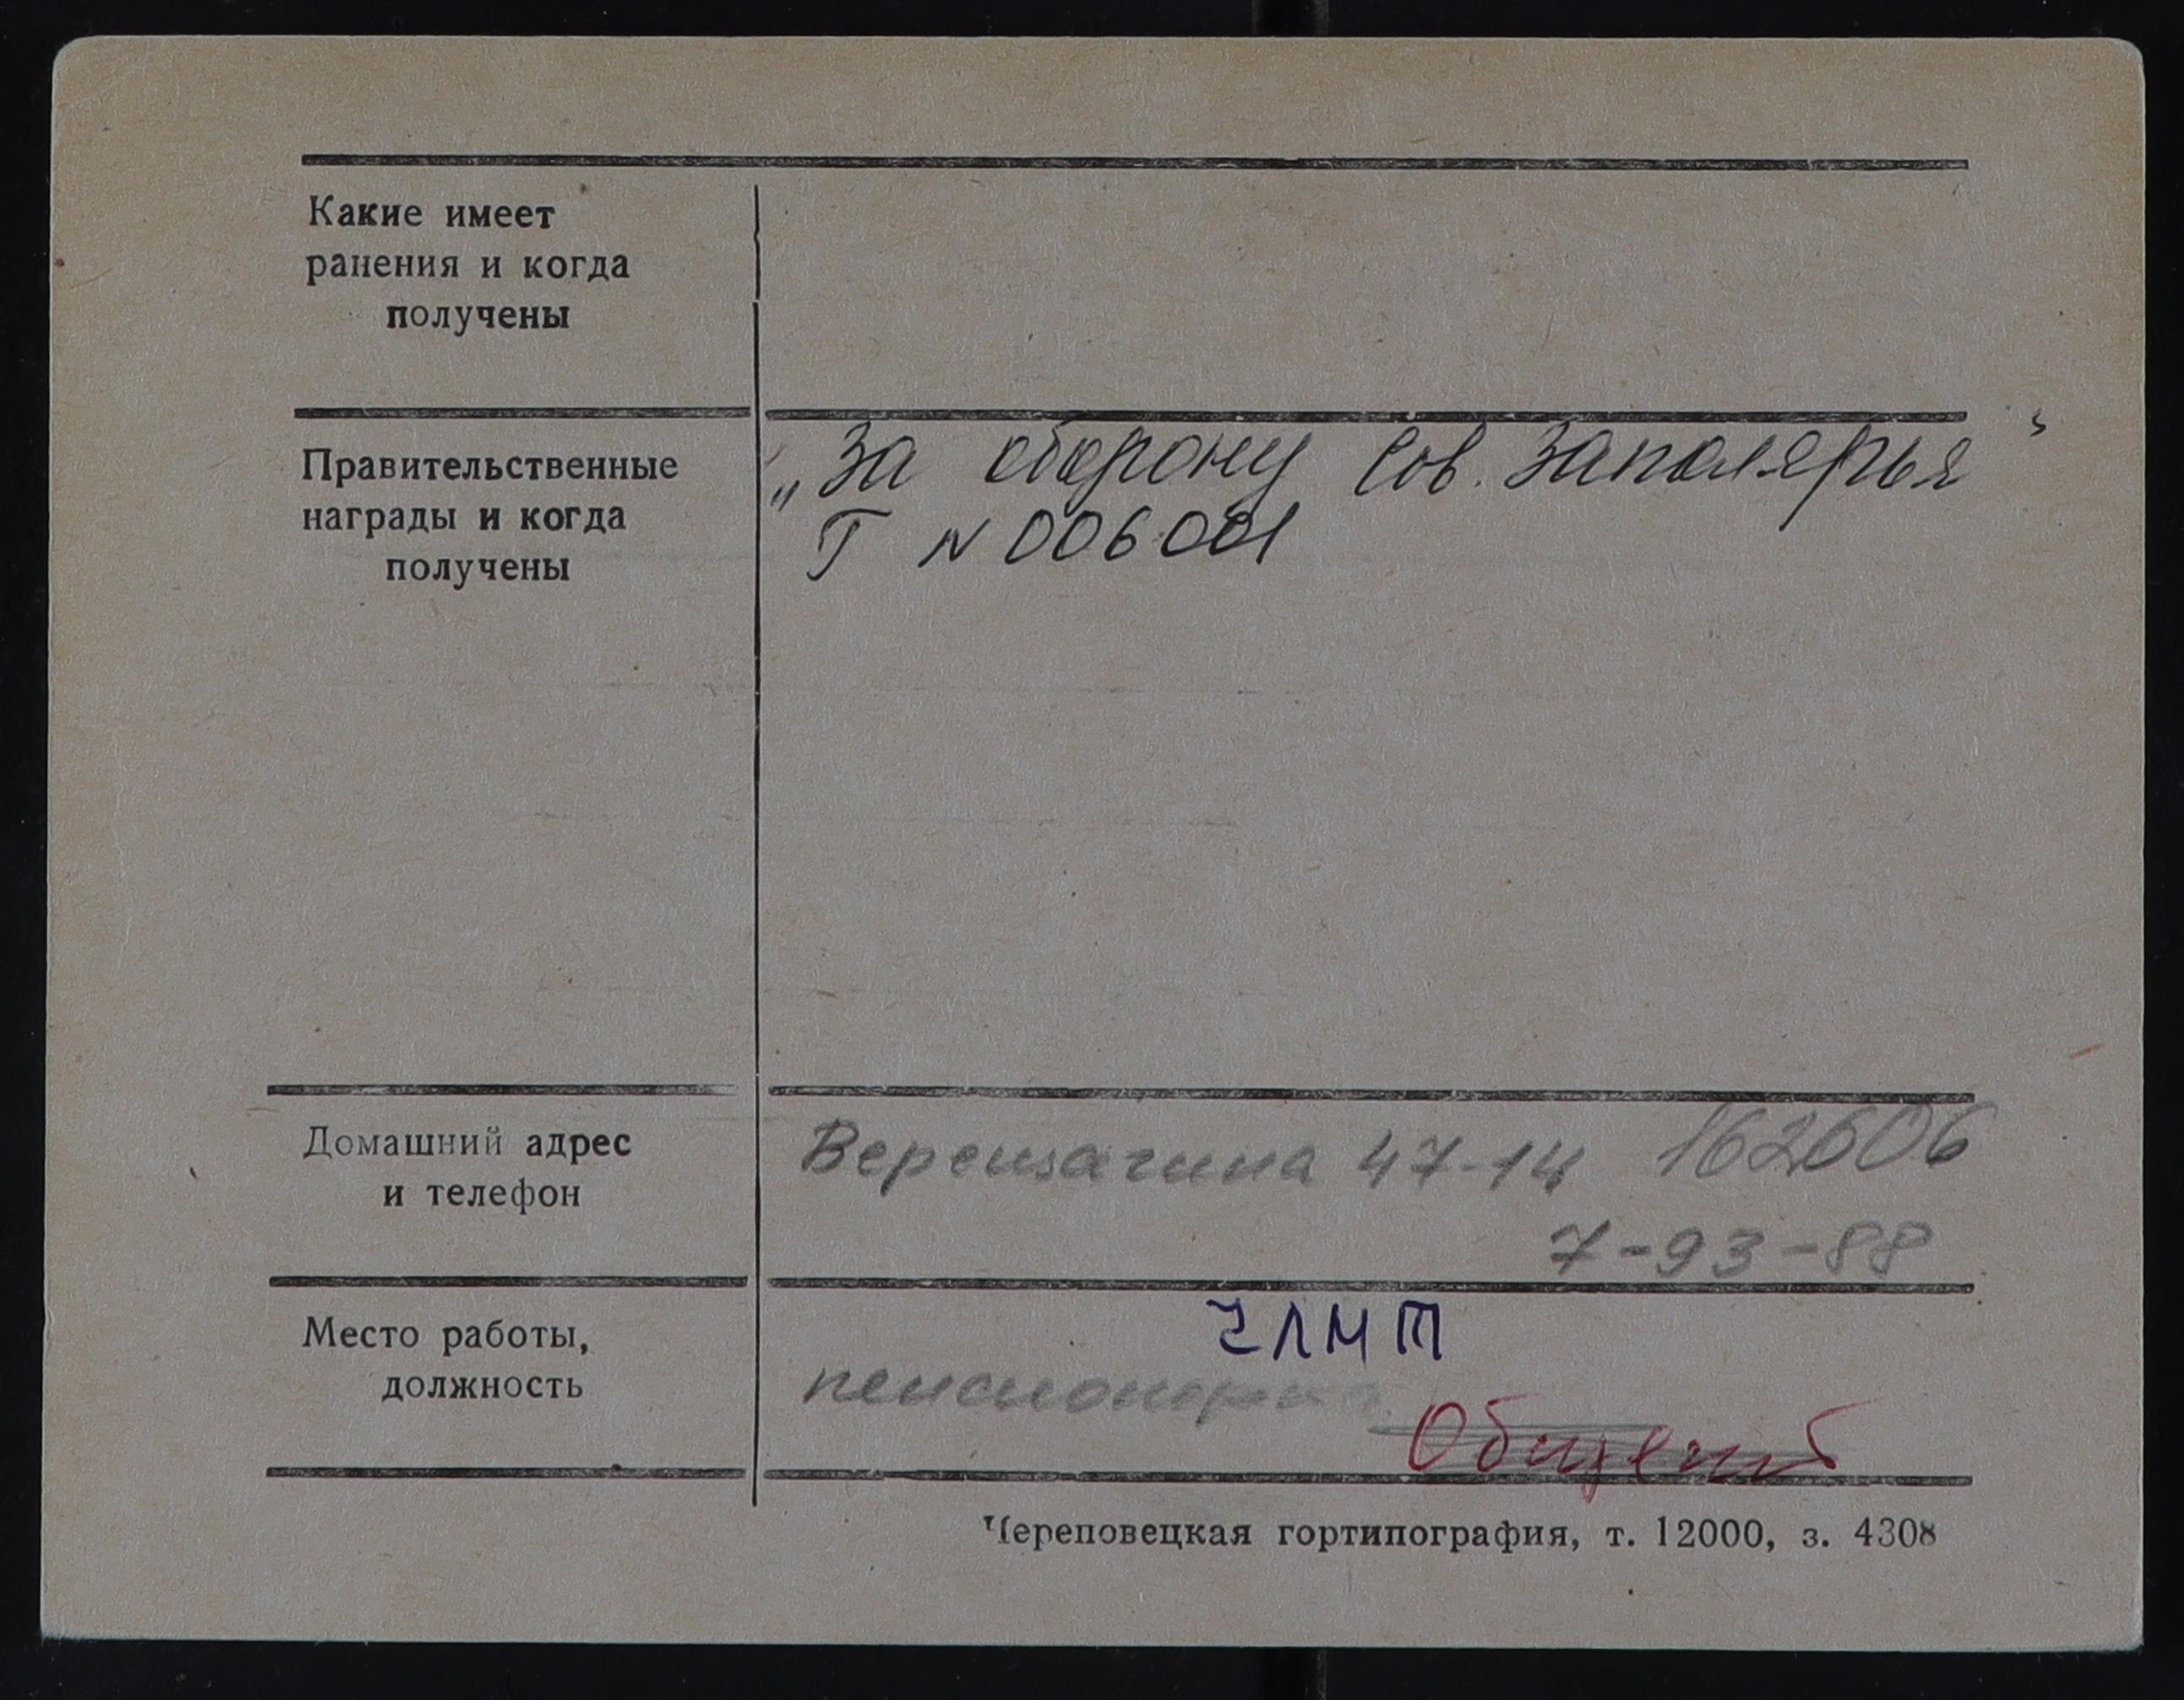 Какие имеет
ранения и когда
получены
Правительственные
награды и когда
получены
„За оборону Сов. Заполярья"
Г N 006001
Домашний адрес
и телефон
Верещагина 47-14 162606
7-93-88
Место работы,
должность
ЧЛМТ
пенсионерка
Череповецкая гортипография, т. 12000, з. 4308